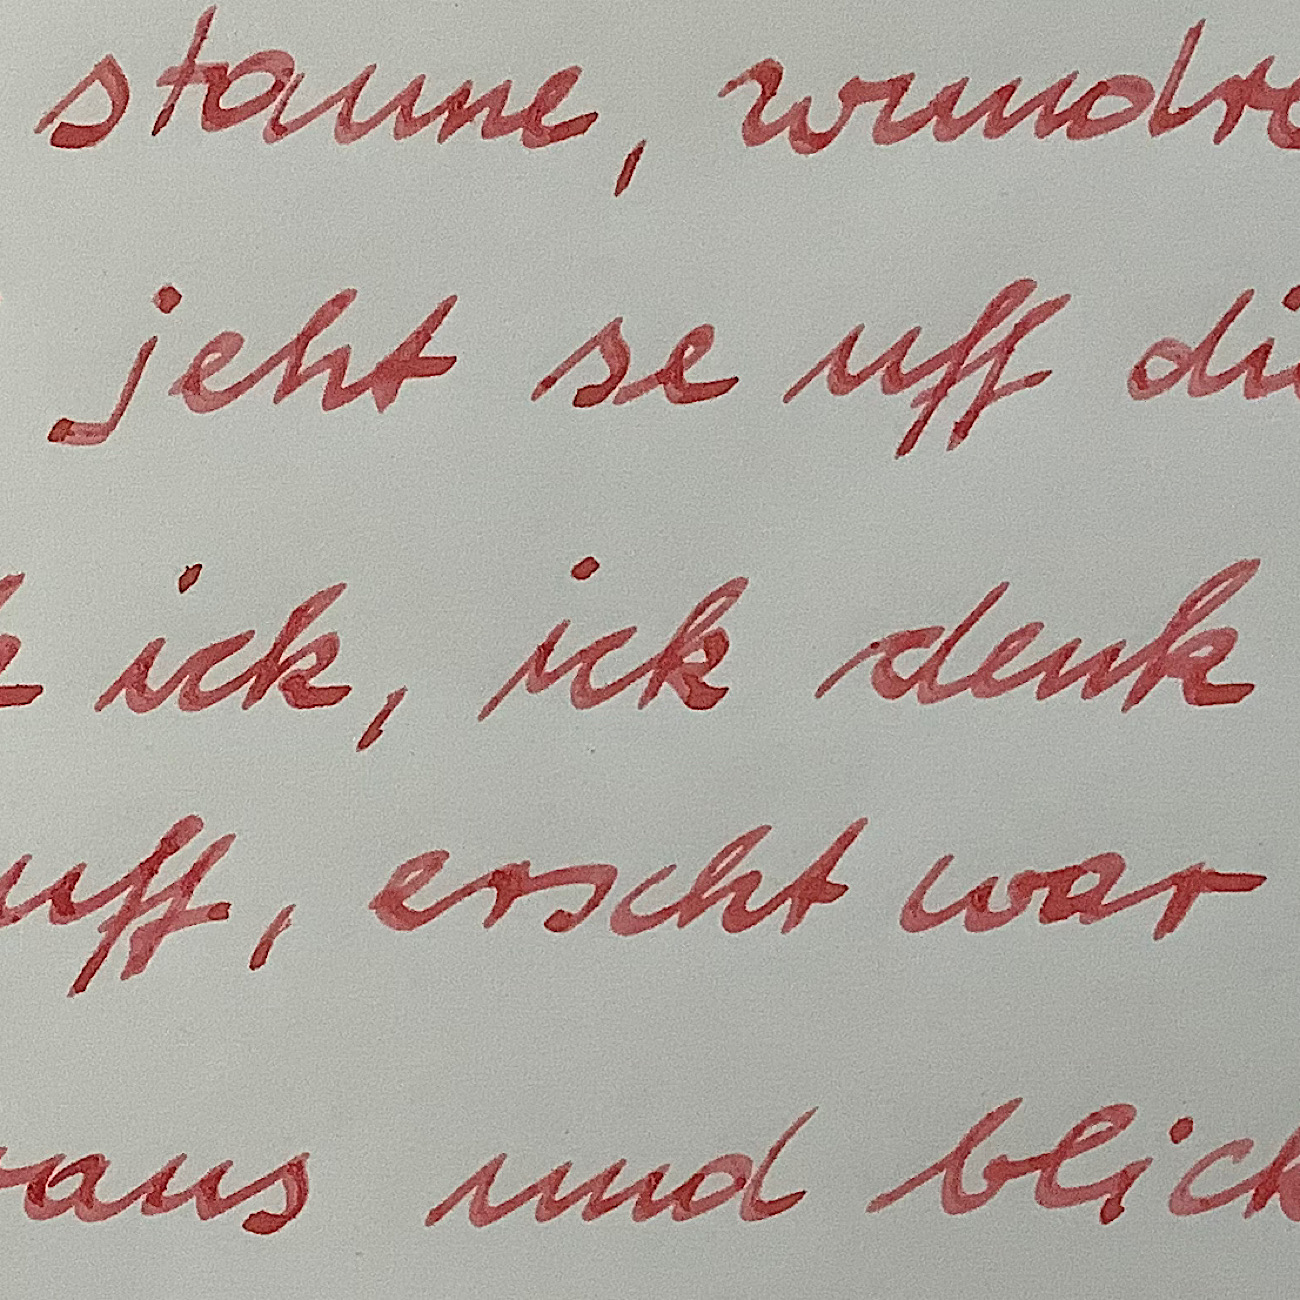 staune, wundre
jeht se uff die
k ick, ick denk
uff, erscht war
raus und blick